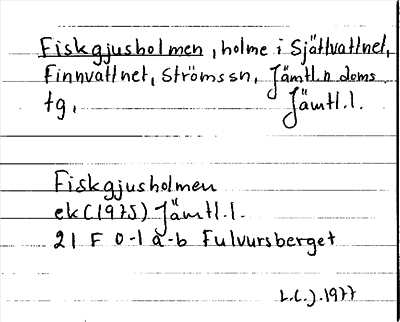 Fiskgjusholmen, holme i Sjättvattnet,
Finnvattnet, Strömssn, Jämtl.n doms
tg, Jämtl.l.
Fiskgjusholmen
ek (1975) Jämtl.l.
21 F 0-1 a-b Fulvursberget
L.C.J. 1977